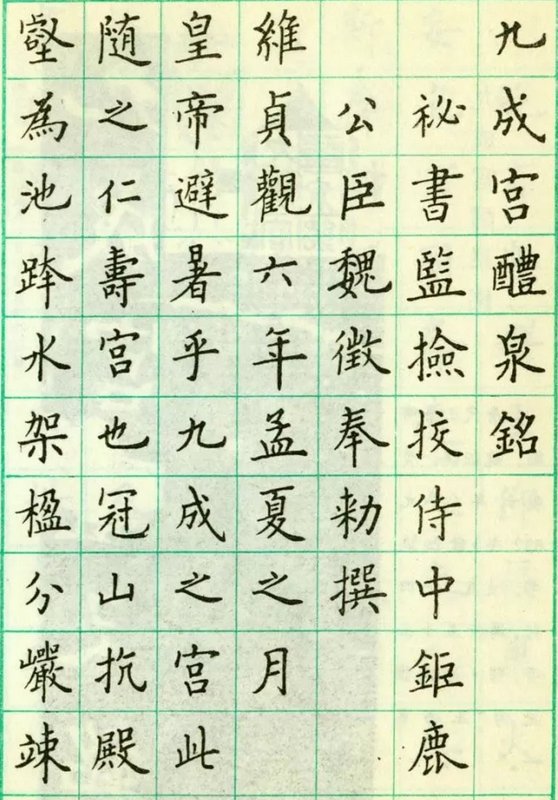 九成宫醴泉銘
秘書監撿挍侍中鉅鹿
公臣魏徵奉勑撰
維貞觀六年孟夏之月
皇帝避暑乎九成之宫此
随之仁壽宫也冠山抗殿
壑為池跨水架楹分巖竦